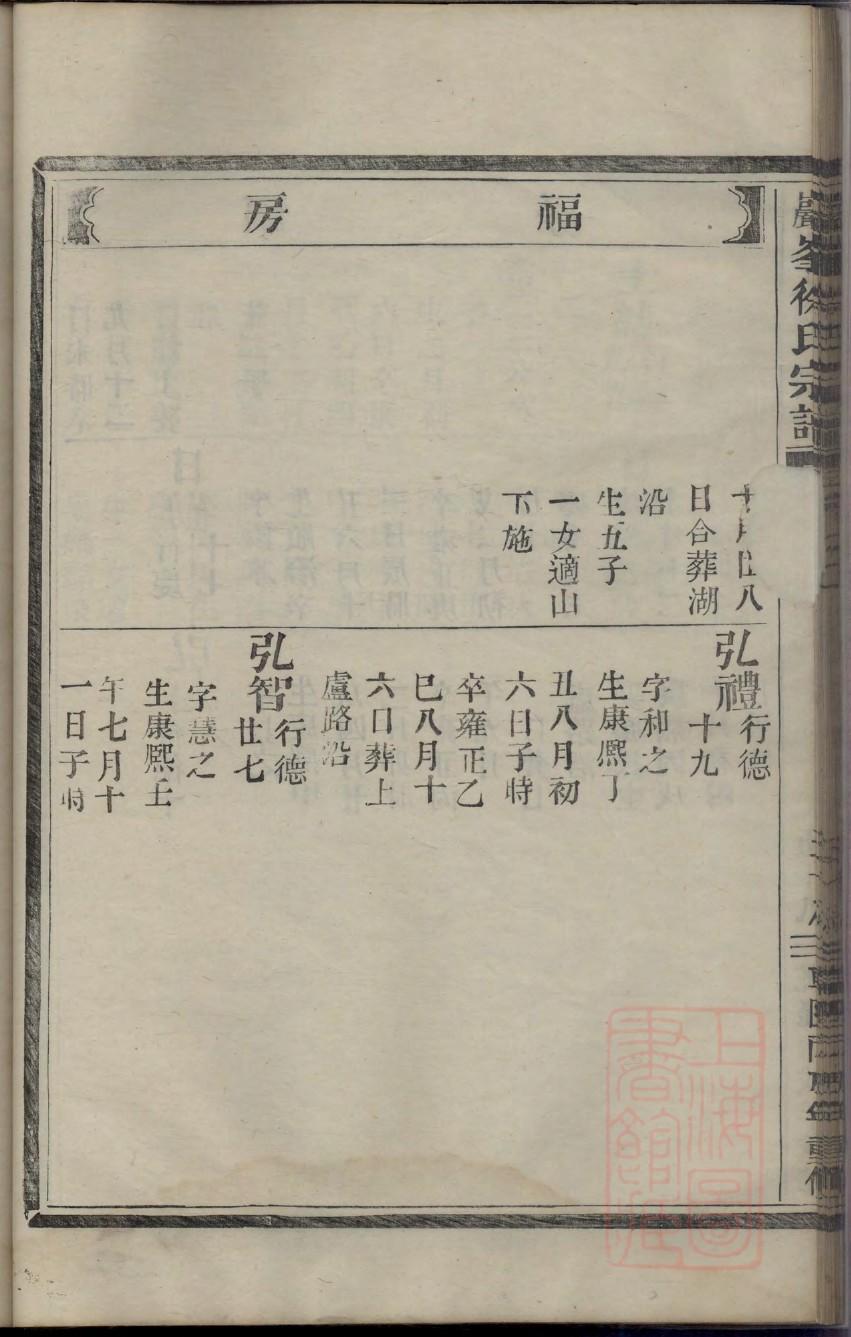 巖峯徐氏宗譜
福房
十月廿八
日合葬湖
沿
生五子
一女適山
下施
弘禮
行德
十九
字和之
生康熙丁
丑八月初
六日子時
卒雍正乙
巳八月十
六日葬上
盧路沿
弘智
行德
廿七
字慧之
生康熙壬
午七月十
一日子時
上海圖
書館藏